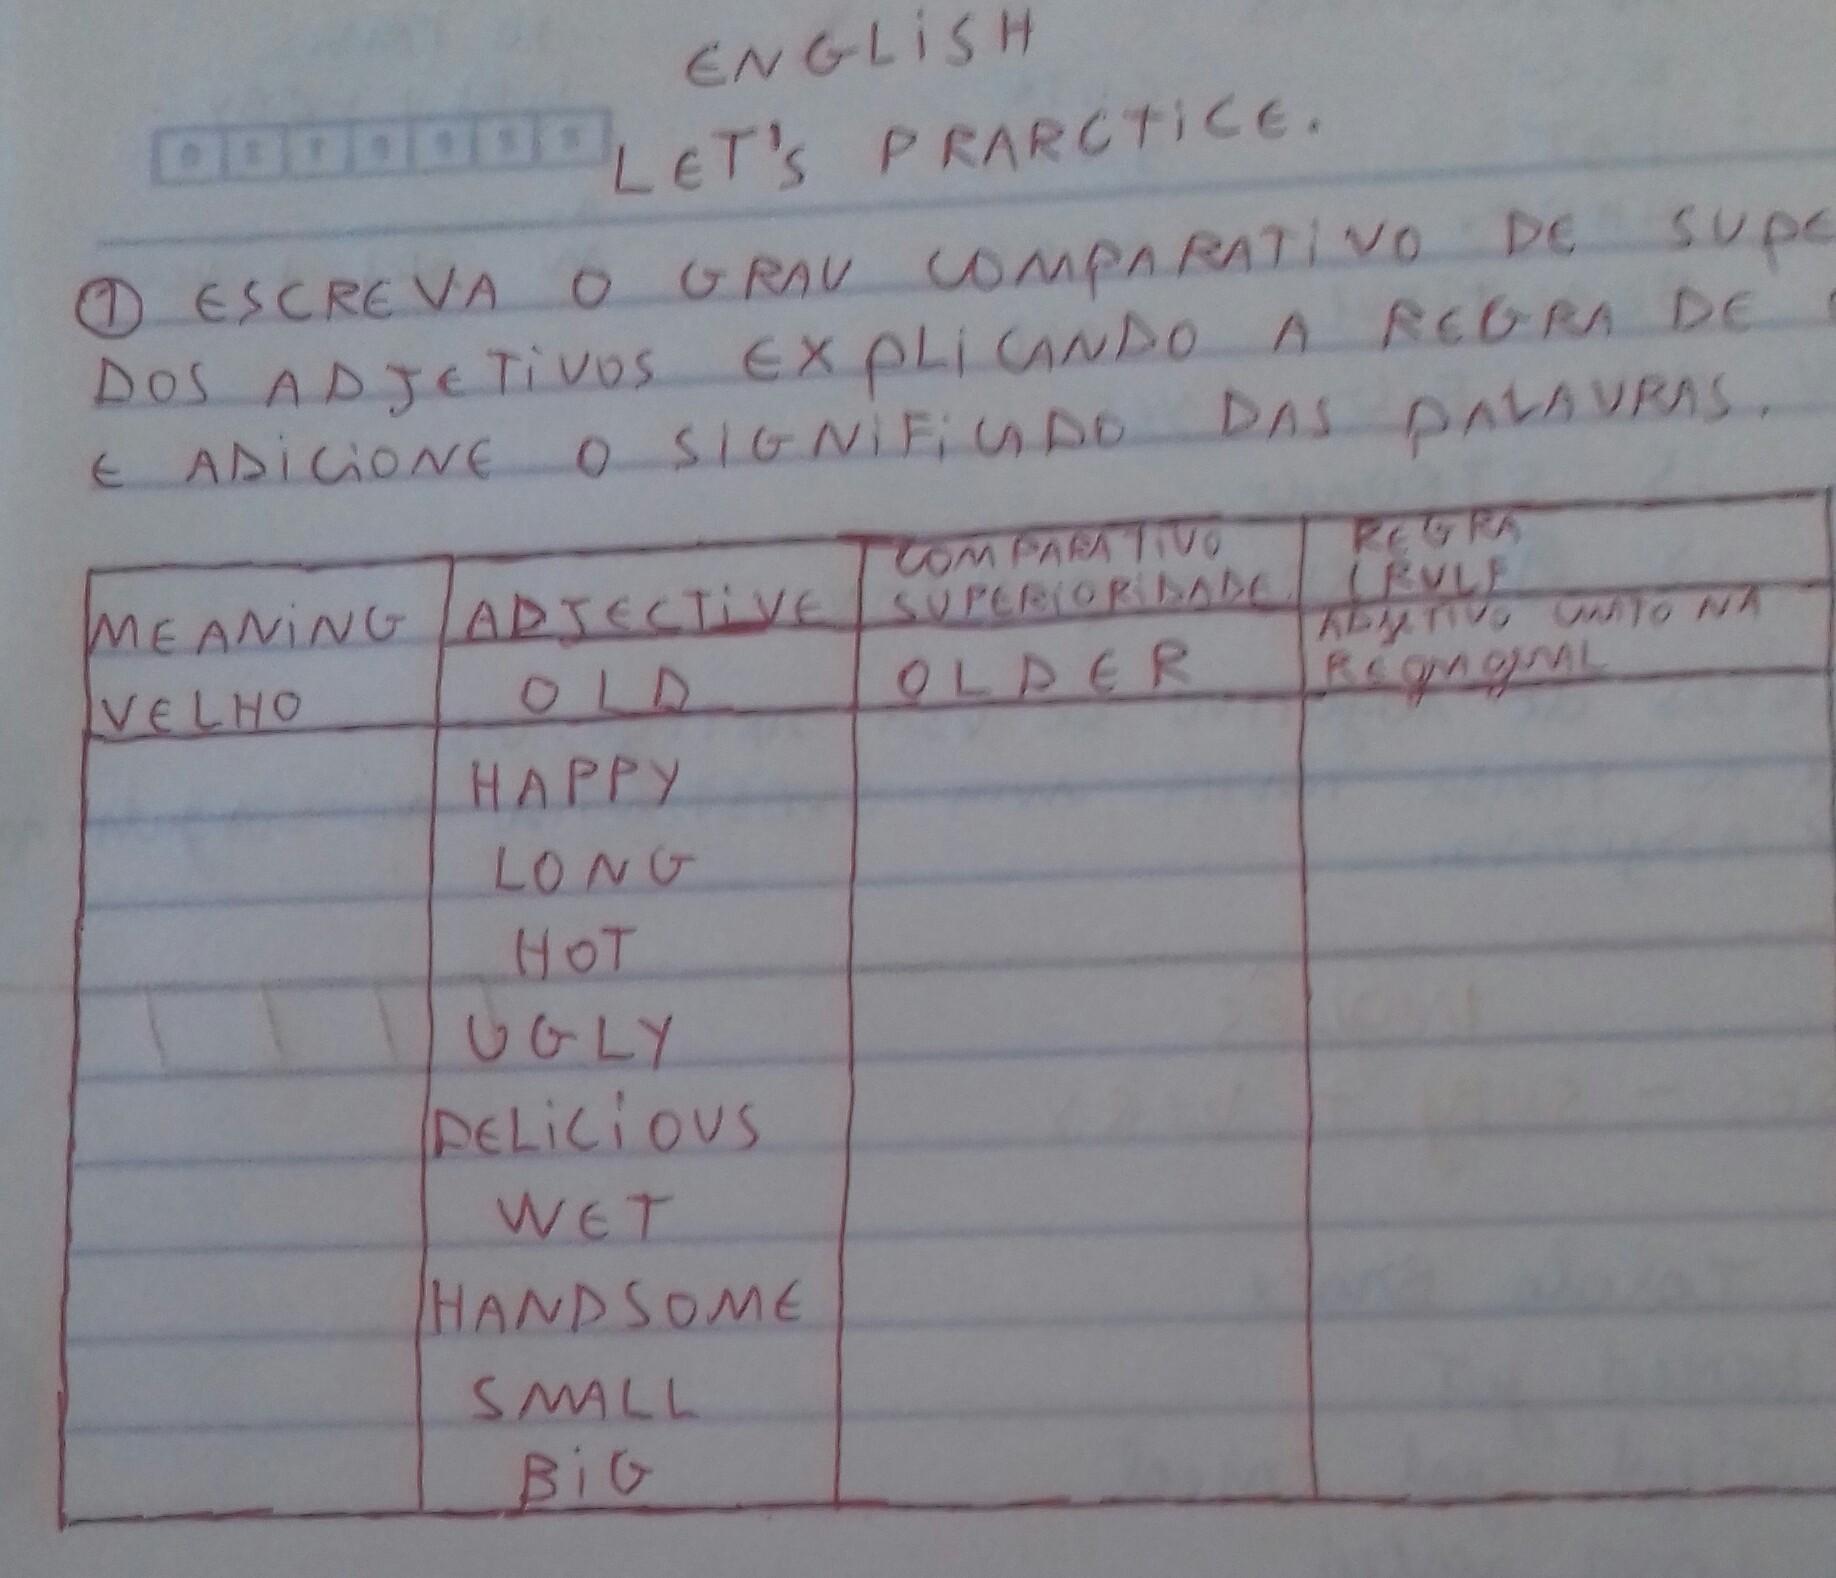 ENGLISH
LET'S PRARCTICE.
① ESCREVA O GRAU COMPARATIVO DE SUPE
DOS ADJETIVOS EXPLICANDO A REGRA DE
E ADICIONE O SIGNIFICADO DAS PALAVRAS.
MEANING ADJECTIVE COMPARATIVO SUPERIORIDADE REGRA (RULE
VELHO OLD OLDER ADJETIVO CURTO NA
HAPPY
LONG
HOT
UGLY
DELICIOUS
WET
HANDSOME
SMALL
BIG